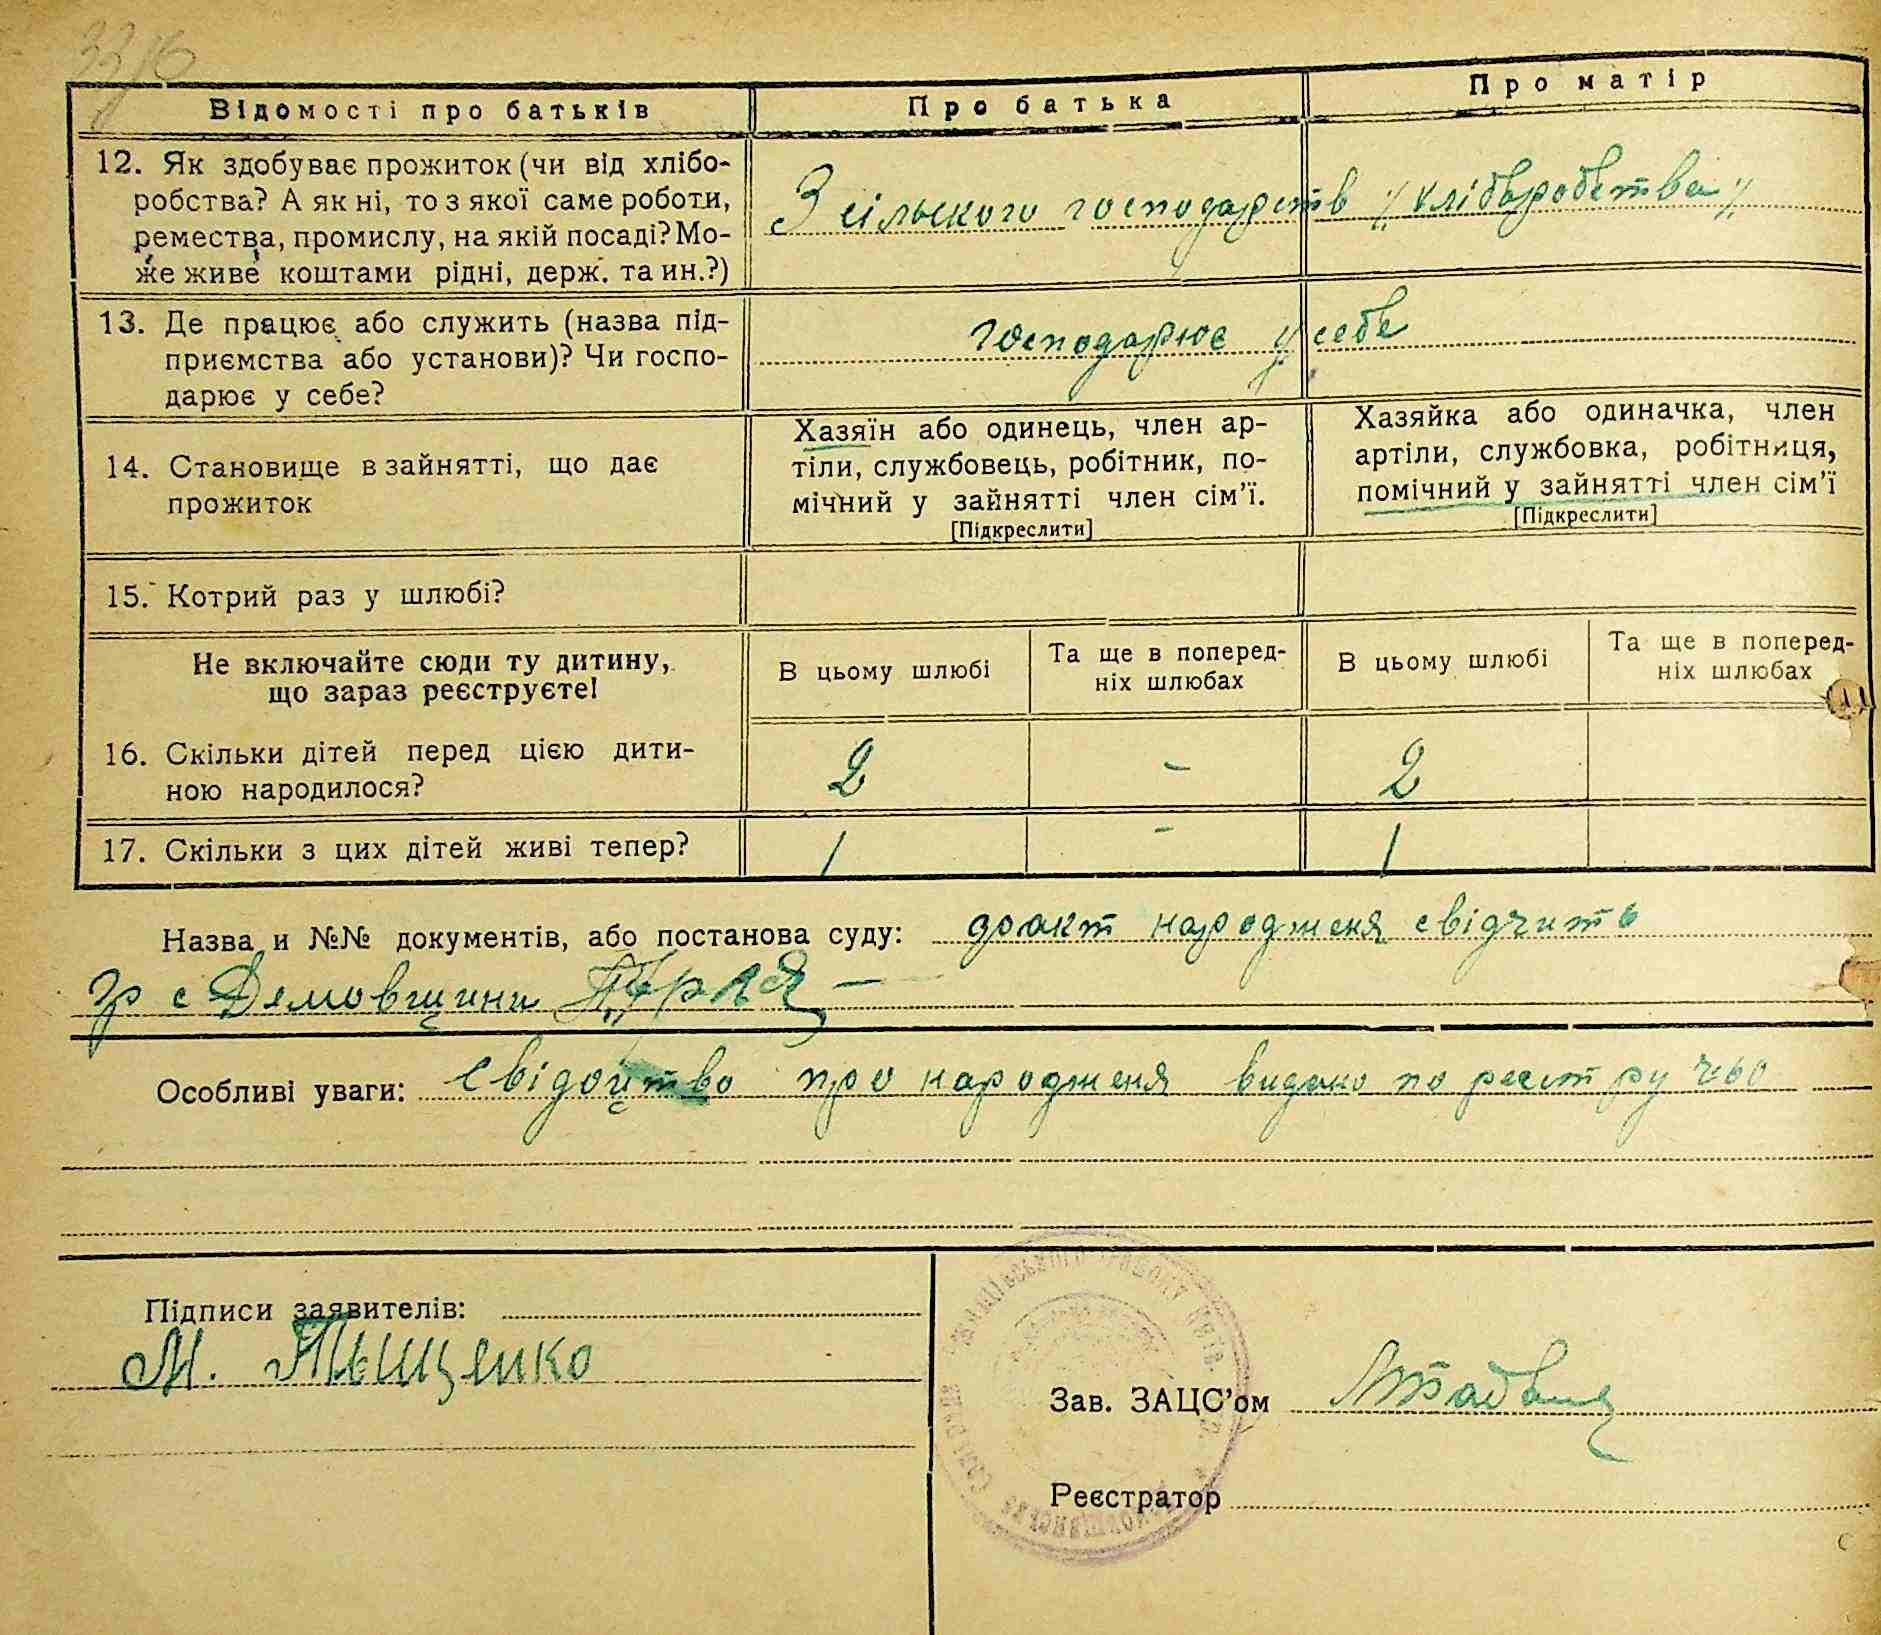 Відомості про батьків
Про батька
Про матір
12. Як здобуває прожиток (чи від хлібо-
робства? А як ні, то з якої саме роботи,
ремества, промислу, на якій посаді? Мо-
же живе коштами рідні, держ. та ин.?)
З сільского господарств /хліборобства/
13. Де працює або служить (назва під-
приємства або установи)? Чи госпо-
дарює у себе?
Господарює у себе
14. Становище в зайнятті, що дає
прожиток
Хазяїн або одинець, член ар-
тіли, службовець, робітник, по-
мічний у зайнятті член сім'ї.
[Підкреслити]
Хазяйка або одиначка, член
артіли, службовка, робітниця,
помічний у зайнятті член сім'ї
[Підкреслити]
15. Котрий раз у шлюбі?
Не включайте сюди ту дитину,
що зараз реєструєте!
В цьому шлюбі
Та ще в поперед-
ніх шлюбах
В цьому шлюбі
Та ще в поперед-
ніх шлюбах
16. Скільки дітей перед цією дити-
ною народилося?
2 - 2
17. Скільки з цих дітей живі тепер?
1 - 1
Назва и №№ документів, або постанова суду: факт народженя свідчить
гр с Демовщини
Особливі уваги: Свідоцтво про народженя видано по реєстру
Підписи заявителів:
М. Тыщенко
Зав. ЗАЦС'ом
Реєстратор